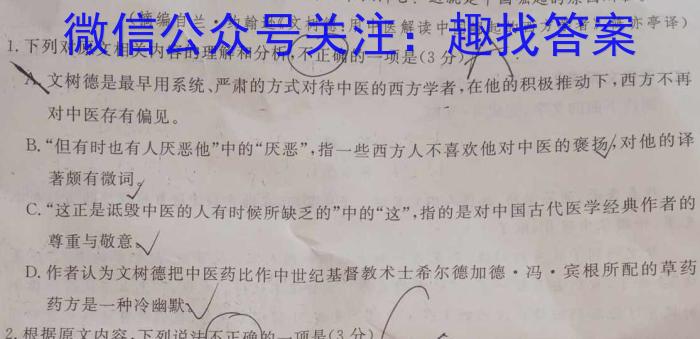 微信公众号关注：趣找答案
1.下列对原文相关内容的理解和分析,不正确的一项是(3分)
A.文树德是最早用系统、严肃的方式对待中医的西方学者,在他的积极推动下,西方不再
对中医存有偏见。
B.“但有时也有人厌恶他”中的“厌恶”,指一些西方人不喜欢他对中医的褒扬,对他的译
著颇有微词。
C.“这正是诋毁中医的人有时候所缺乏的”中的“这”,指的是对中国古代医学经典作者的
尊重与敬意。
D.作者认为文树德把中医药比作中世纪基督教术士希尔德加德·冯·宾根所配的草药
药方是一种冷幽默。
2.根据原文内容,下列说法不正确的一项是(3分)